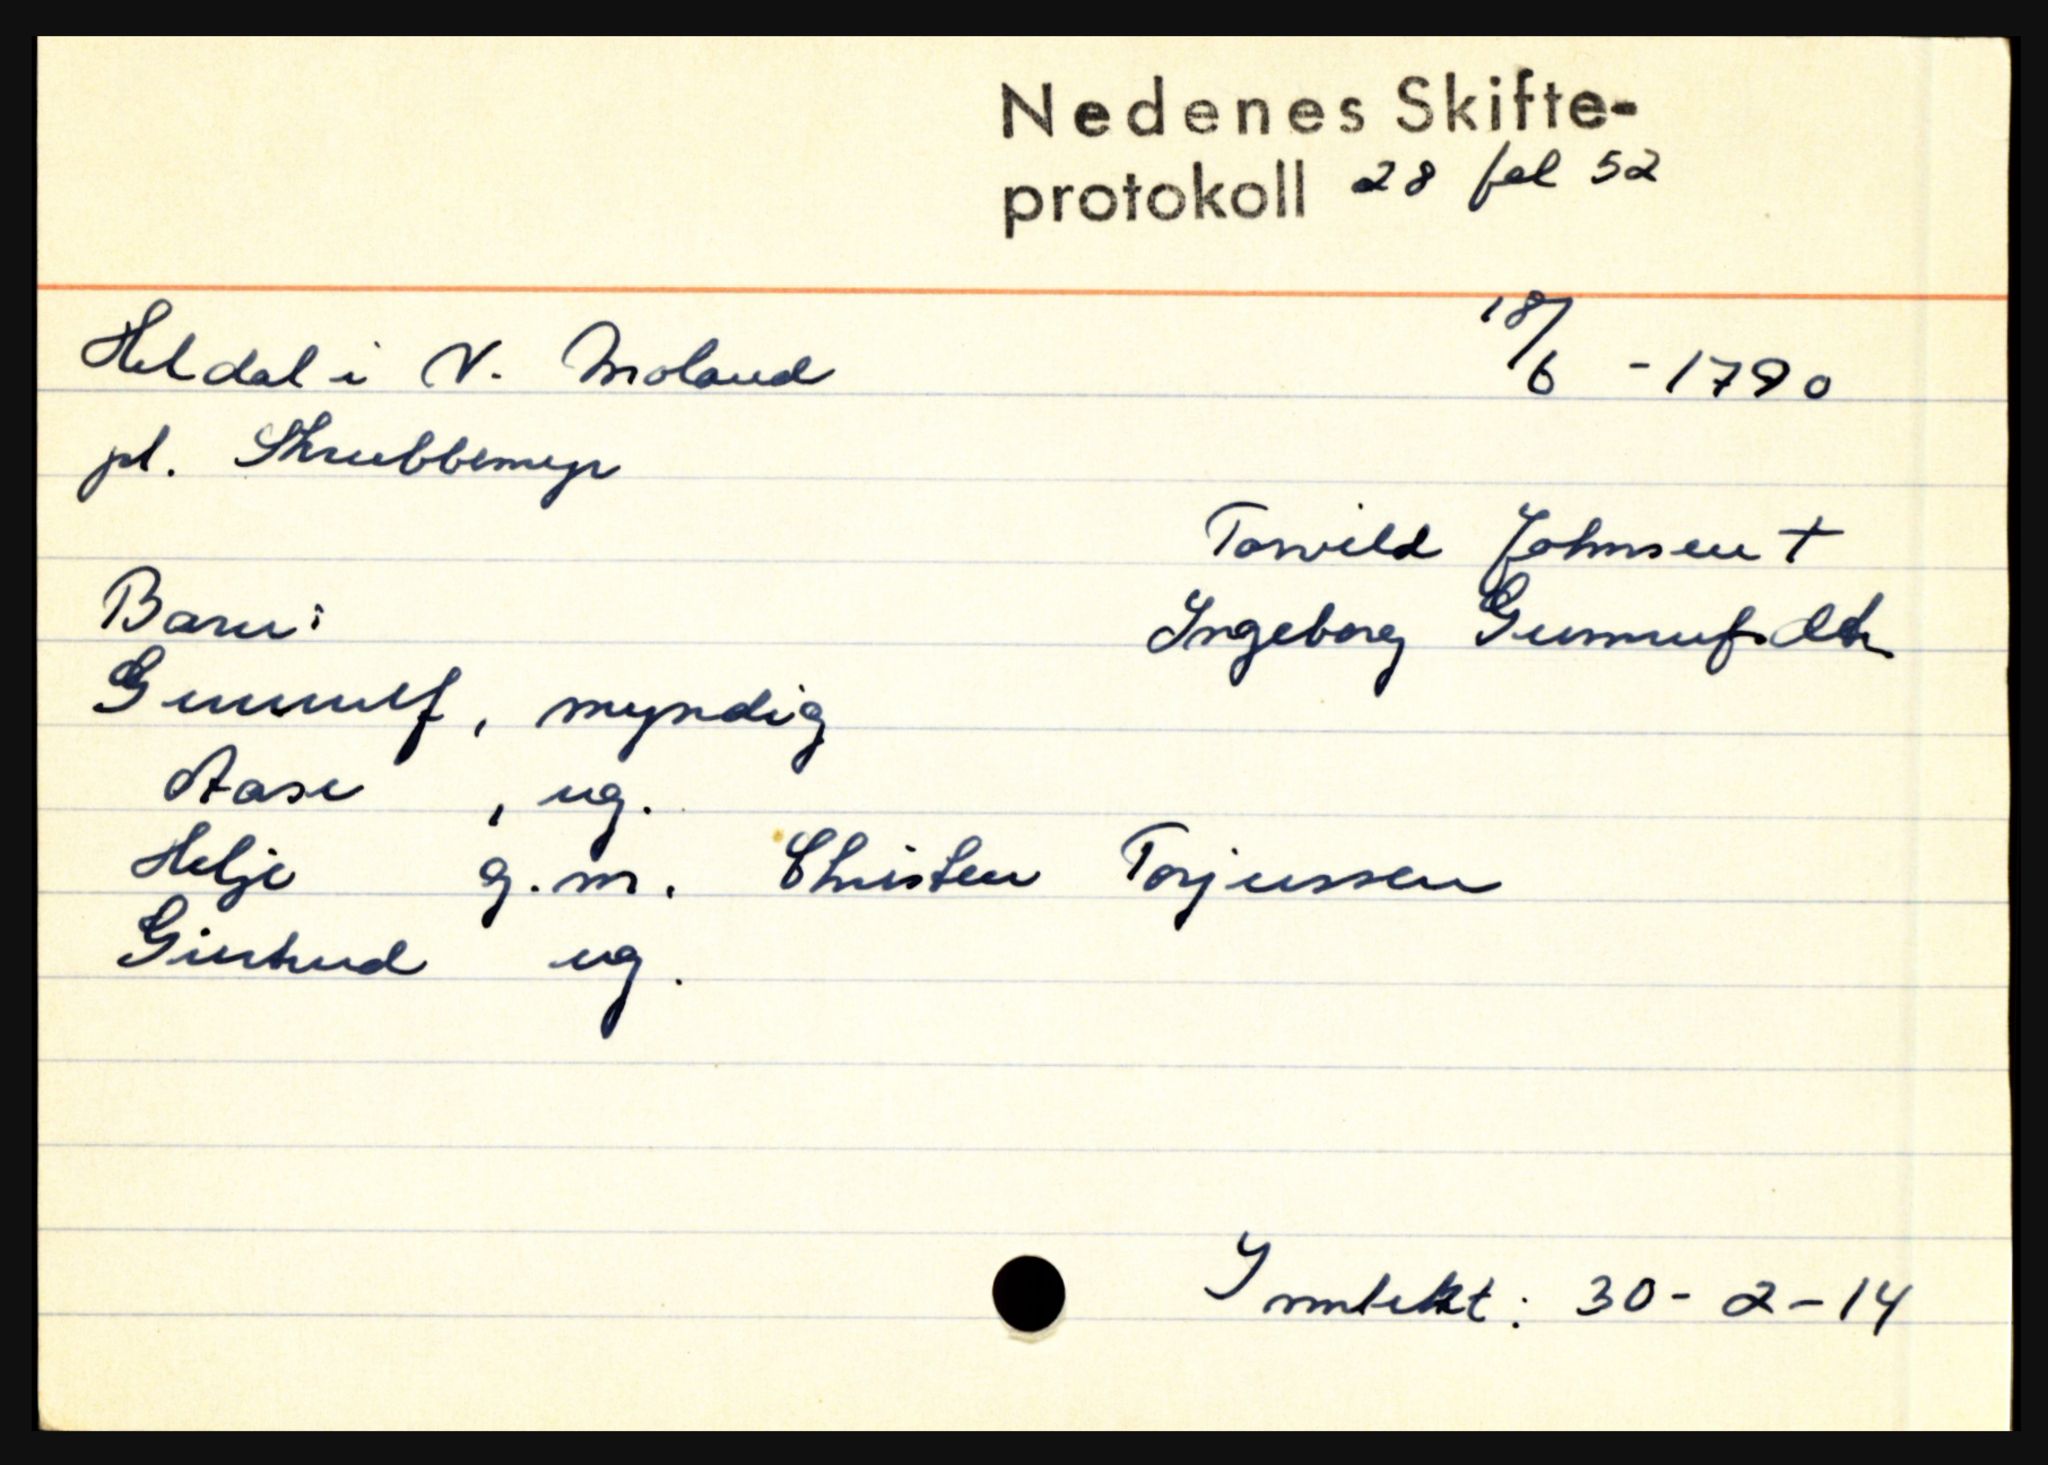 Nedenes Skifte-
protokoll 28 fol 52
Heldal i V. Moland 18/6 - 1790
pl. Skrubbemyr
Torvild Johnsen +
Barn: Ingeborg Gunnufsdtr
Gunnulf, myndig
Aase , ug.
Helje g.m. Christen Torjussen
Giertrud ug.
Inntekt: 30-2-14